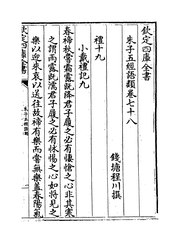 欽定四庫全書
朱子五經語類卷七十八
錢塘程川撰
禮十九
小戴禮記九
春禘秋嘗霜露既降君子履之必有悽愴之心非其寒
之謂雨露既濡君子履之必有怵惕之心如將見之
樂以迎來哀以送往故禘有樂而嘗無樂蓋春陽氣
欽定四庫全書